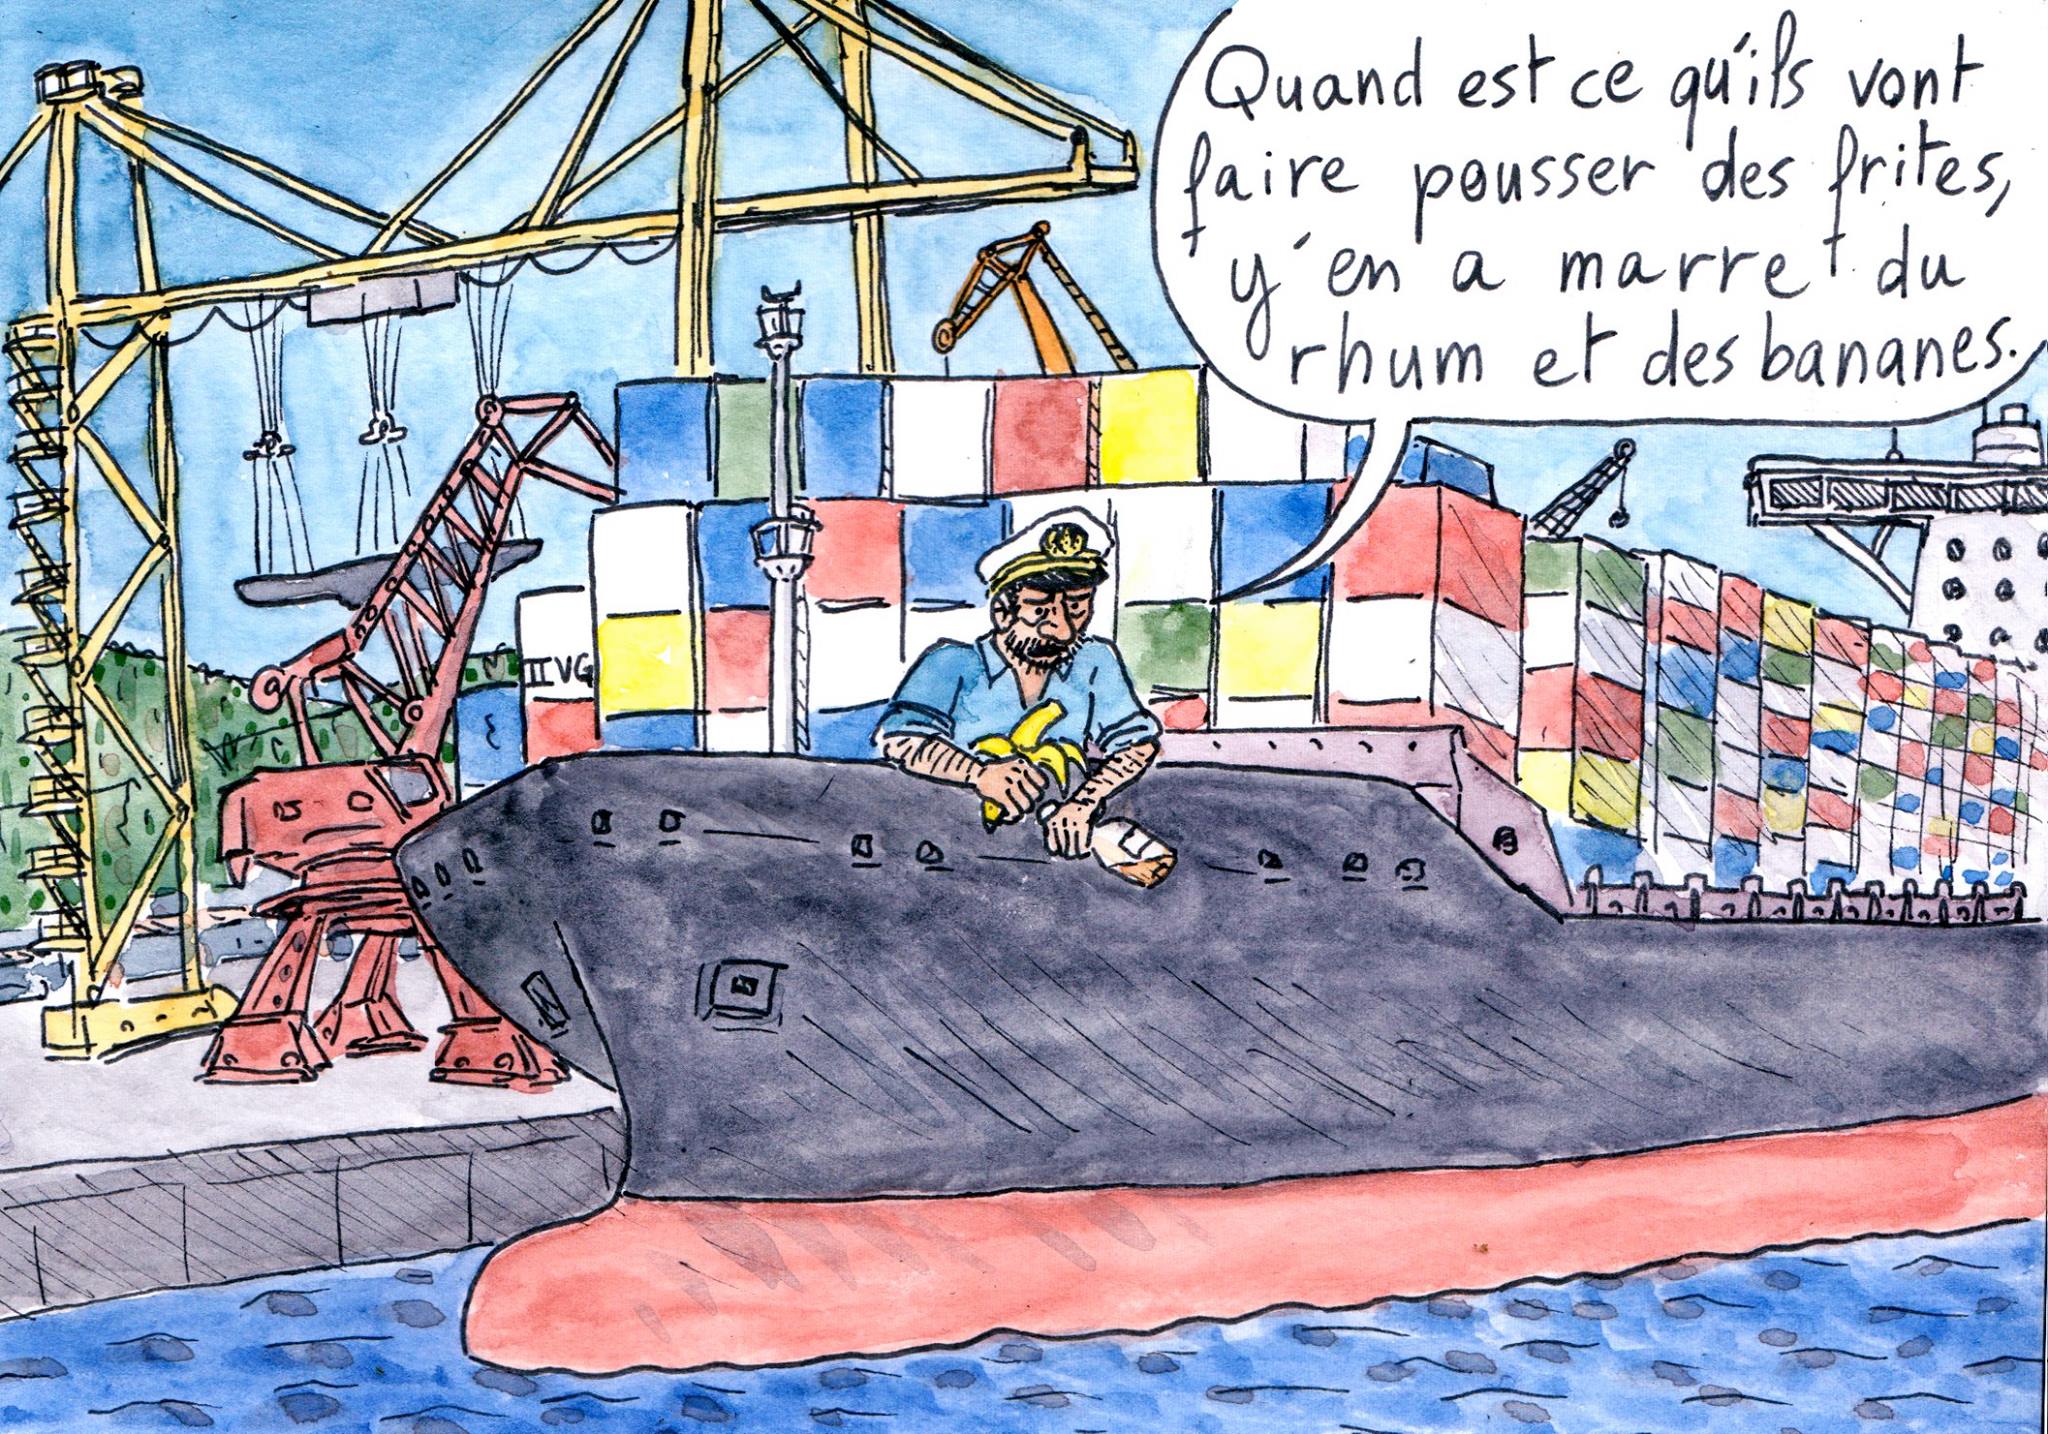 Quand est ce qu'ils vont
faire pousser des frites,
y'en a marre du
rhum et des bananes.
IIVG